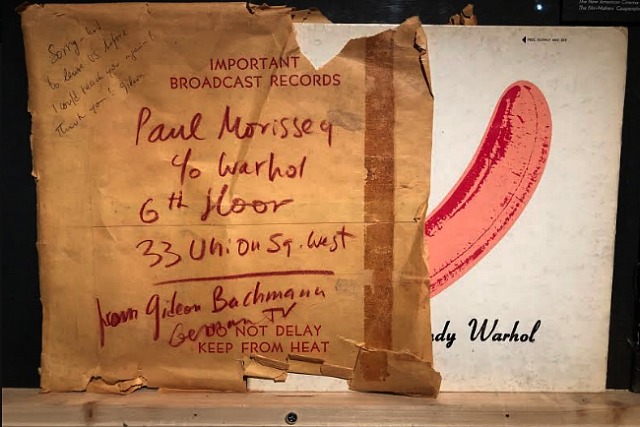 Sorry - had
to leave US before
I could reach you again!
Thank you! Gideon
IMPORTANT
BROADCAST RECORDS
Paul Morissey
c/o Warhol
6th floor
33 Union Sq. West
from Gideon Bachmann
German TV
DO NOT DELAY
KEEP FROM HEAT
PEEL SLOWLY AND SEE
ndy Warhol
The New American Cinema
The Film-Makers' Cooperative